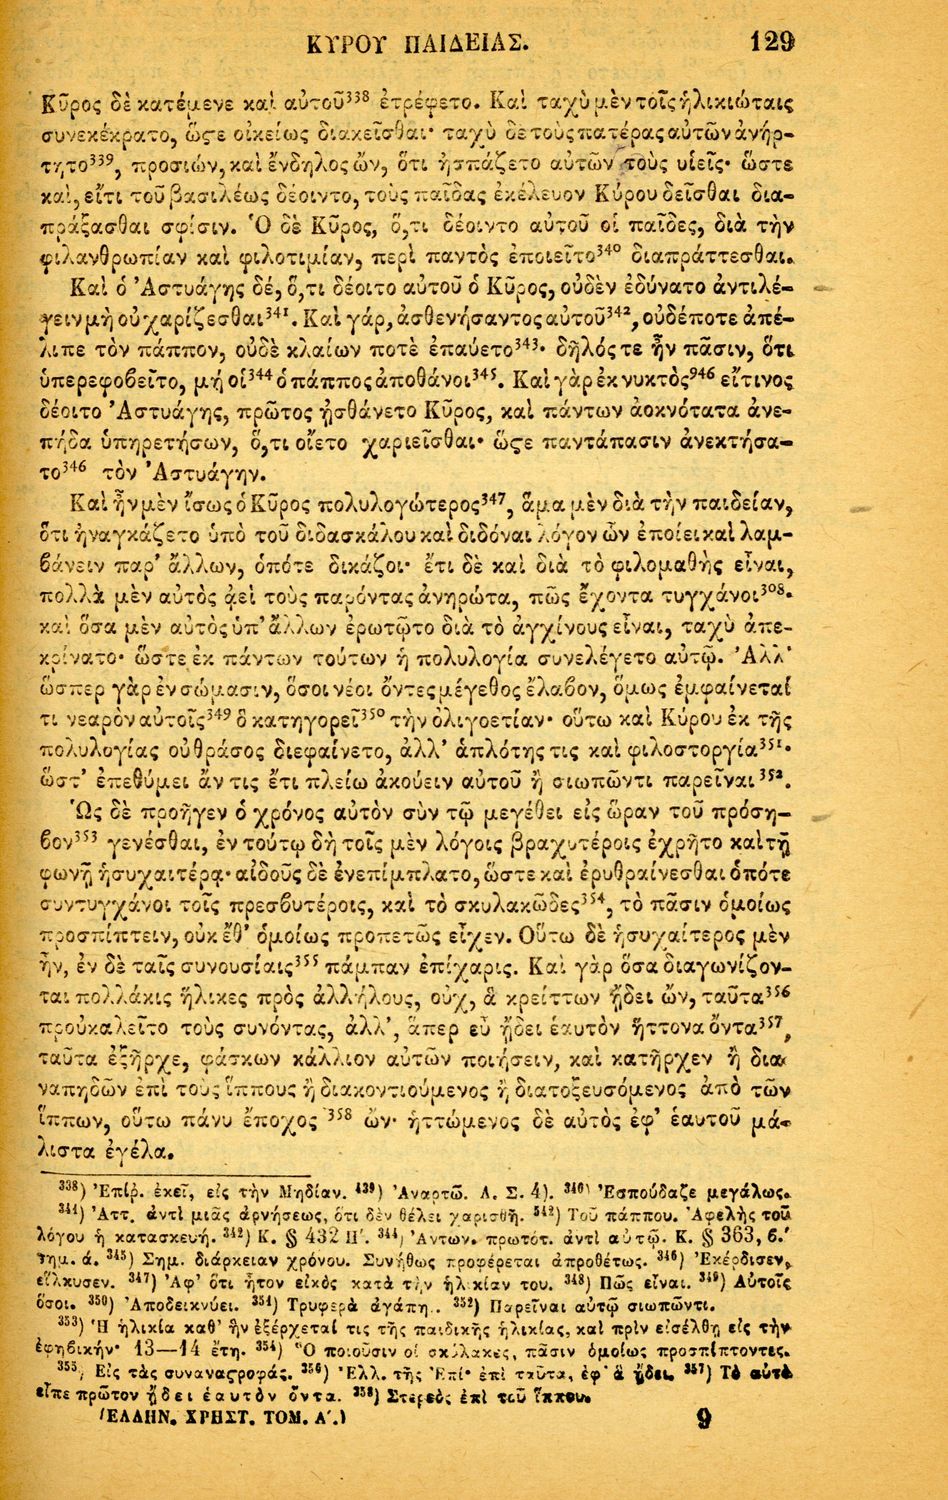 ΚΥΡΟΥ ΠΑΙΔΕΙΑΣ. 129
Κῦρος δὲ κατέμενε καὶ αὐτοῦ³³⁸ ἐτρέφετο. Καὶ ταχὺ μὲν τοῖς ἡλικιώταις
συνεκέκρατο, ὥςε οἰκείως διακεῖσθαι· ταχὺ δὲ τοὺς πατέρας αὐτῶν ἀνήρ-
τητο³³⁹, προσιών, καὶ ἔνδηλος ὤν, ὅτι ἠσπάζετο αὐτῶν τοὺς υἱεῖς· ὥστε
καὶ, εἴτι τοῦ βασιλέως δέοιντο, τοὺς παῖδας ἐκέλευον Κύρου δεῖσθαι δια-
πράξασθαι σφίσιν. Ὁ δὲ Κῦρος, ὅ,τι δέοιντο αὐτοῦ οἱ παῖδες, διὰ τὴν
φιλανθρωπίαν καὶ φιλοτιμίαν, περὶ παντὸς ἐποιεῖτο³⁴⁰ διαπράττεσθαι.
Καὶ ὁ Ἀστυάγης δέ, ὅ,τι δέοιτο αὐτοῦ ὁ Κῦρος, οὐδὲν ἐδύνατο ἀντιλέ-
γειν μὴ οὐ χαρίζεσθαι³⁴¹. Καὶ γάρ, ἀσθενήσαντος αὐτοῦ³⁴², οὐδέποτε ἀπέ-
λιπε τὸν πάππον, οὐδὲ κλαίων ποτὲ ἐπαύετο³⁴³· δῆλός τε ἦν πᾶσιν, ὅτι
ὑπερεφοβεῖτο, μή οἱ³⁴⁴ ὁ πάππος ἀποθάνοι³⁴⁵. Καὶ γὰρ ἐκ νυκτὸς⁹⁴⁶ εἴ τινος
δέοιτο Ἀστυάγης, πρῶτος ᾐσθάνετο Κῦρος, καὶ πάντων ἀοκνότατα ἀνε-
πήδα ὑπηρετήσων, ὅ,τι οἴετο χαριεῖσθαι· ὥςε παντάπασιν ἀνεκτήσα-
το³⁴⁶ τὸν Ἀστυάγην.
Καὶ ἦν μὲν ἴσως ὁ Κῦρος πολυλογώτερος³⁴⁷, ἅμα μὲν διὰ τὴν παιδείαν,
ὅτι ἠναγκάζετο ὑπὸ τοῦ διδασκάλου καὶ διδόναι λόγον ὧν ἐποίει καὶ λαμ-
βάνειν παρ' ἄλλων, ὁπότε δικάζοι· ἔτι δὲ καὶ διὰ τὸ φιλομαθὴς εἶναι,
πολλὰ μὲν αὐτὸς ἀεὶ τοὺς παρόντας ἀνηρώτα, πῶς ἔχοντα τυγχάνοι³⁰⁸·
καὶ ὅσα μὲν αὐτὸς ὑπ' ἄλλων ἐρωτῷτο διὰ τὸ ἀγχίνους εἶναι, ταχὺ ἀπε-
κρίνατο· ὥστε ἐκ πάντων τούτων ἡ πολυλογία συνελέγετο αὐτῷ. Ἀλλ'
ὥσπερ γὰρ ἐν σώμασιν, ὅσοι νέοι ὄντες μέγεθος ἔλαβον, ὅμως ἐμφαίνεταί
τι νεαρὸν αὐτοῖς³⁴⁹ ὃ κατηγορεῖ³⁵⁰ τὴν ὀλιγοετίαν· οὕτω καὶ Κύρου ἐκ τῆς
πολυλογίας οὐ θράσος διεφαίνετο, ἀλλ' ἁπλότης τις καὶ φιλοστοργία³⁵¹·
ὥστ' ἐπεθύμει ἄν τις ἔτι πλείω ἀκούειν αὐτοῦ ἢ σιωπῶντι παρεῖναι³⁵².
Ὡς δὲ προῆγεν ὁ χρόνος αὐτὸν σὺν τῷ μεγέθει εἰς ὥραν τοῦ πρόση-
βον³⁵³ γενέσθαι, ἐν τούτῳ δὴ τοῖς μὲν λόγοις βραχυτέροις ἐχρῆτο καὶ τῇ
φωνῇ ἡσυχαιτέρᾳ· αἰδοῦς δὲ ἐνεπίμπλατο, ὥστε καὶ ἐρυθραίνεσθαι ὁπότε
συντυγχάνοι τοῖς πρεσβυτέροις, καὶ τὸ σκυλακῶδες³⁵⁴, τὸ πᾶσιν ὁμοίως
προσπίπτειν, οὐκ ἔθ' ὁμοίως προπετῶς εἶχεν. Οὕτω δὲ ἡσυχαίτερος μὲν
ἦν, ἐν δὲ ταῖς συνουσίαις³⁵⁵ πάμπαν ἐπίχαρις. Καὶ γὰρ ὅσα διαγωνίζον-
ται πολλάκις ἥλικες πρὸς ἀλλήλους, οὐχ, ἃ κρείττων ᾔδει ὤν, ταῦτα³⁵⁶
προὐκαλεῖτο τοὺς συνόντας, ἀλλ', ἅπερ εὖ ᾔδει ἑαυτὸν ἥττονα ὄντα³⁵⁷,
ταῦτα ἐξῆρχε, φάσκων κάλλιον αὐτῶν ποιήσειν, καὶ κατῆρχεν ἢ δια
ναπηδῶν ἐπὶ τοὺς ἵππους ἢ διακοντιούμενος ἢ διατοξευσόμενος ἀπὸ τῶν
ἵππων, οὕτω πάνυ ἔποχος ³⁵⁸ ὤν· ἡττώμενος δὲ αὐτὸς ἐφ' ἑαυτοῦ μά-
λιστα ἐγέλα.
³³⁸) Ἐπίῤ. ἐκεῖ, εἰς τὴν Μηδίαν. ⁴³⁹) Ἀναρτῶ. Λ. Σ. 4). ³⁴⁰) Ἐσπούδαζε μεγάλως.
³⁴¹) Ἀττ. ἀντὶ μιᾶς ἀρνήσεως, ὅτι δὲν θέλει χαρισθῆ. ³⁴²) Τοῦ πάππου. Ἀφελὴς τοῦ
λόγου ἡ κατασκευή. ³⁴²) Κ. § 432 Η'. ³⁴⁴) Ἀντων. πρωτότ. ἀντὶ αὐτῷ. Κ. § 363, 6.
Σημ. ά. ³⁴⁵) Σημ. διάρκειαν χρόνου. Συνήθως προφέρεται ἀπροθέτως. ³⁴⁶) Ἐκέρδισεν,
εἵλκυσεν. ³⁴⁷) Ἀφ' ὅτι ἦτον εἰκὸς κατὰ τὴν ἡλικίαν του. ³⁴⁸) Πῶς εἶναι. ³⁴⁹) Αὐτοῖς
ὅσοι. ³⁵⁰) Ἀποδεικνύει. ³⁵¹) Τρυφερὰ ἀγάπη.. ³⁵²) Παρεῖναι αὐτῷ σιωπῶντι.
³⁵³) Ἡ ἡλικία καθ' ἣν ἐξέρχεταί τις τῆς παιδικῆς ἡλικίας, καὶ πρὶν εἰσέλθῃ εἰς τὴν
ἐφηβικήν· 13—14 ἔτη. ³⁵⁴) Ὃ ποιοῦσιν οἱ σκύλακες, πᾶσιν ὁμοίως προσπίπτοντες.
³⁵⁵) Εἰς τὰς συναναςροφάς. ³⁵⁶) Ἔλλ. τῆς Ἐπί· ἐπὶ ταῦτα, ἐφ' ἃ ᾔδει. ³⁵⁷) Τὸ αὐτὸ
εἶπε πρῶτον ᾔδει ἑαυτὸν ὄντα. ³⁵⁸) Στερεὸς ἐπὶ τοῦ ἵππου.
(ΕΛΛΗΝ. ΧΡΗΣΤ. ΤΟΜ. Α'.) 9